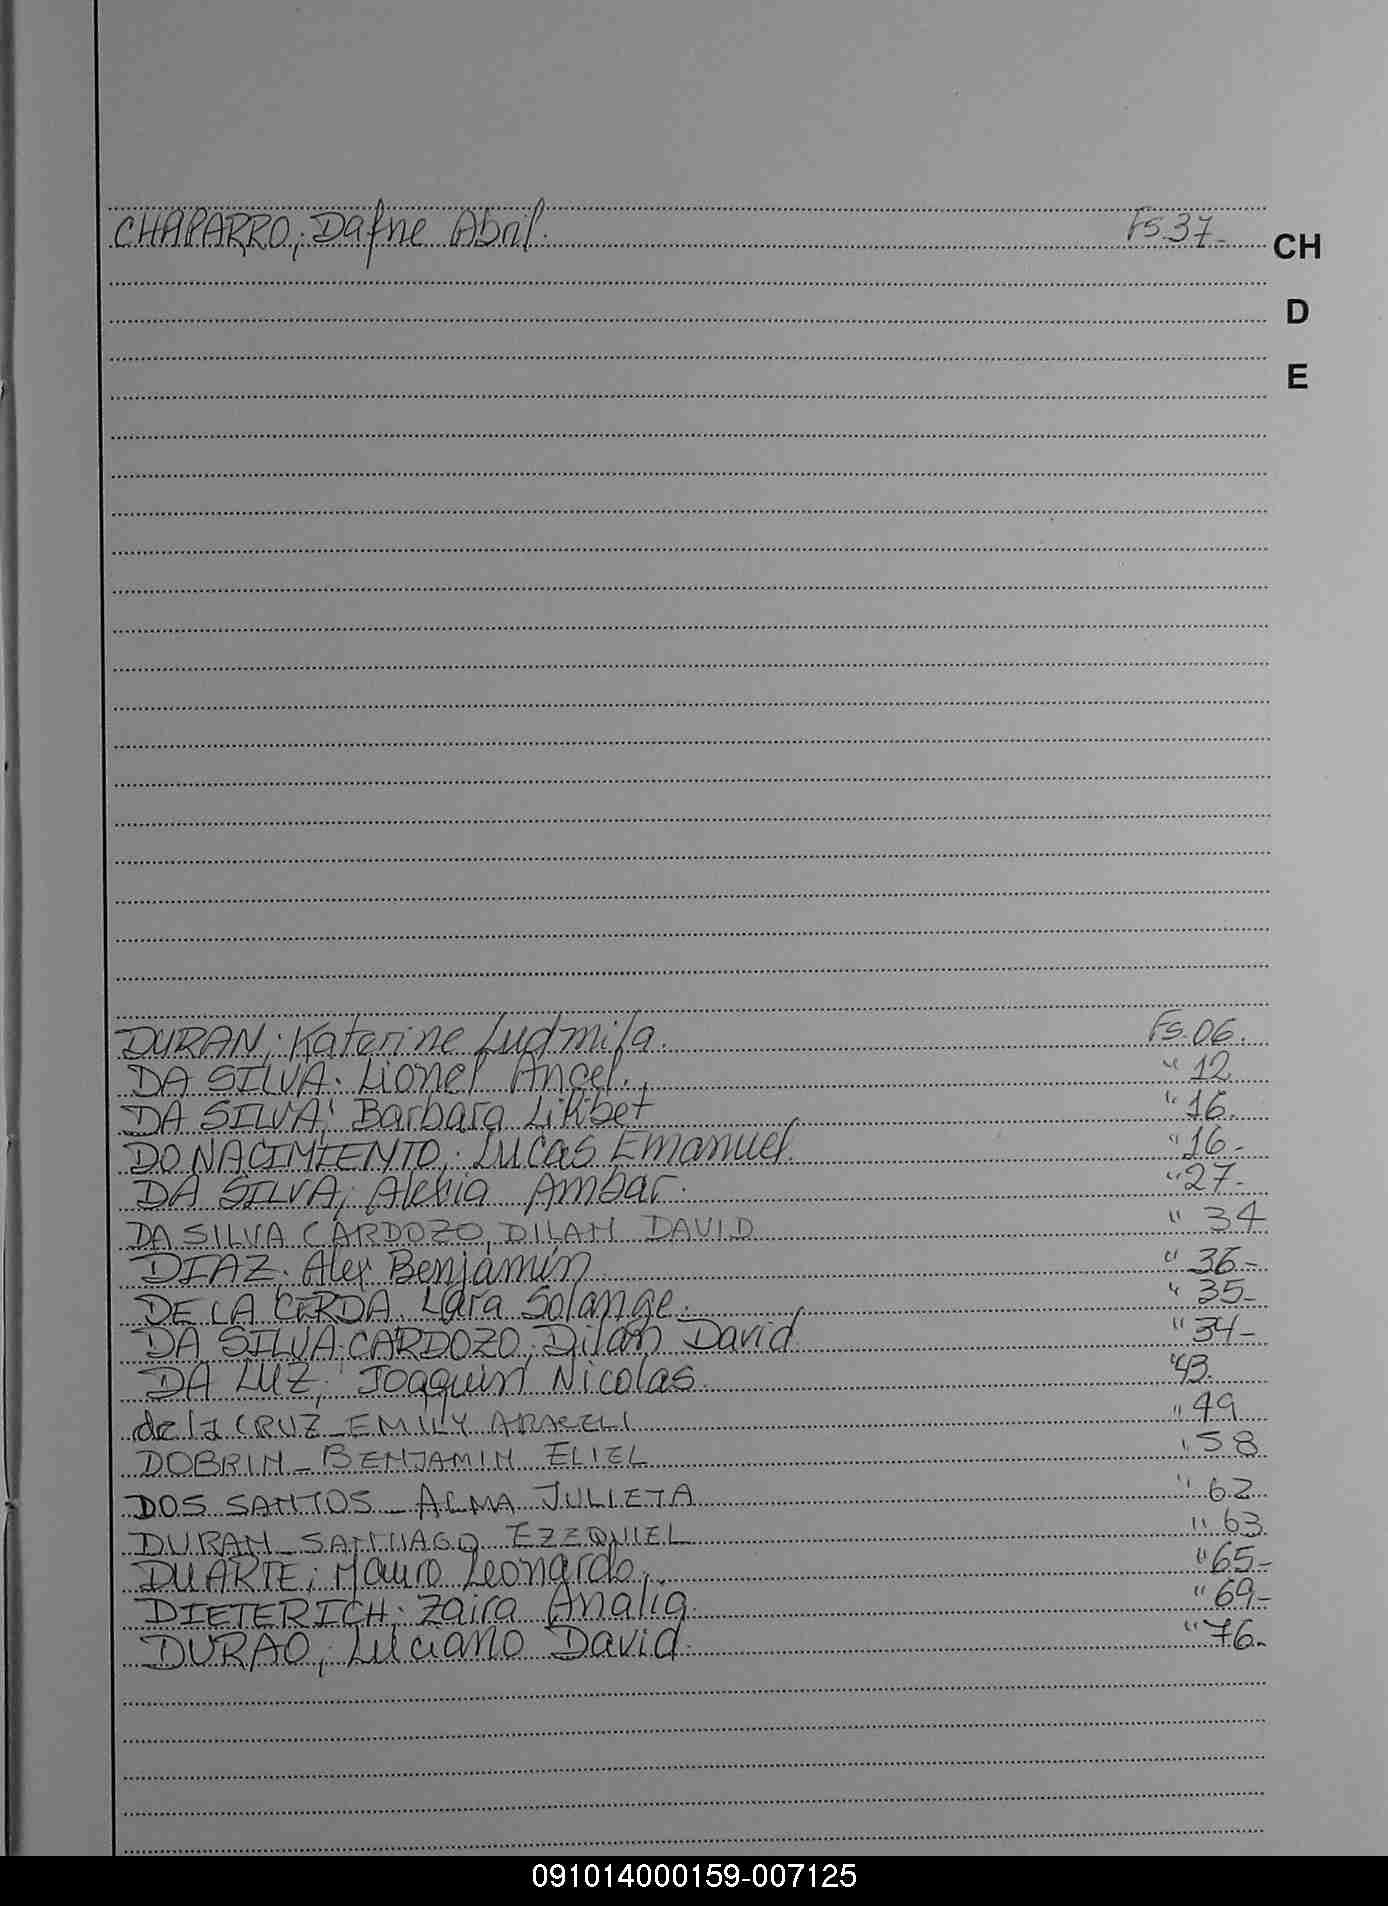 CHAPARRO; Dafne Abril. Fs.37.- CH
D
E
DURAN; Katerine Ludmila. Fs.06.
DA SILVA. Lionel Angel. " 12
DA SILVA; Barbara Lilibet " 16.
DO NACIMIENTO; Lucas Emanuel. " 16-
DA SILVA; Alexia Ambar. " 27-
DA SILVA CARDOZO, DILAN DAVID " 34
DIAZ. Alex Benjamín " 36.-
DE LA CERDA. Lara Solange. " 35-
DA SILVA.CARDOZO; Dilan David " 34-
DA LUZ; Joaquin Nicolas. " 43.
de la CRUZ_EMILY ARACELI " 49
DOBRIN_BENJAMIN ELIEL " 58
DOS SANTOS_ALMA JULIETA " 62
DURAN_SANTIAGO EZEQUIEL " 63
DUARTE; Mauro Leonardo. " 65-
DIETERICH; Zaira Analia " 69-
DURAO; Luciano David. " 76.
091014000159-007125